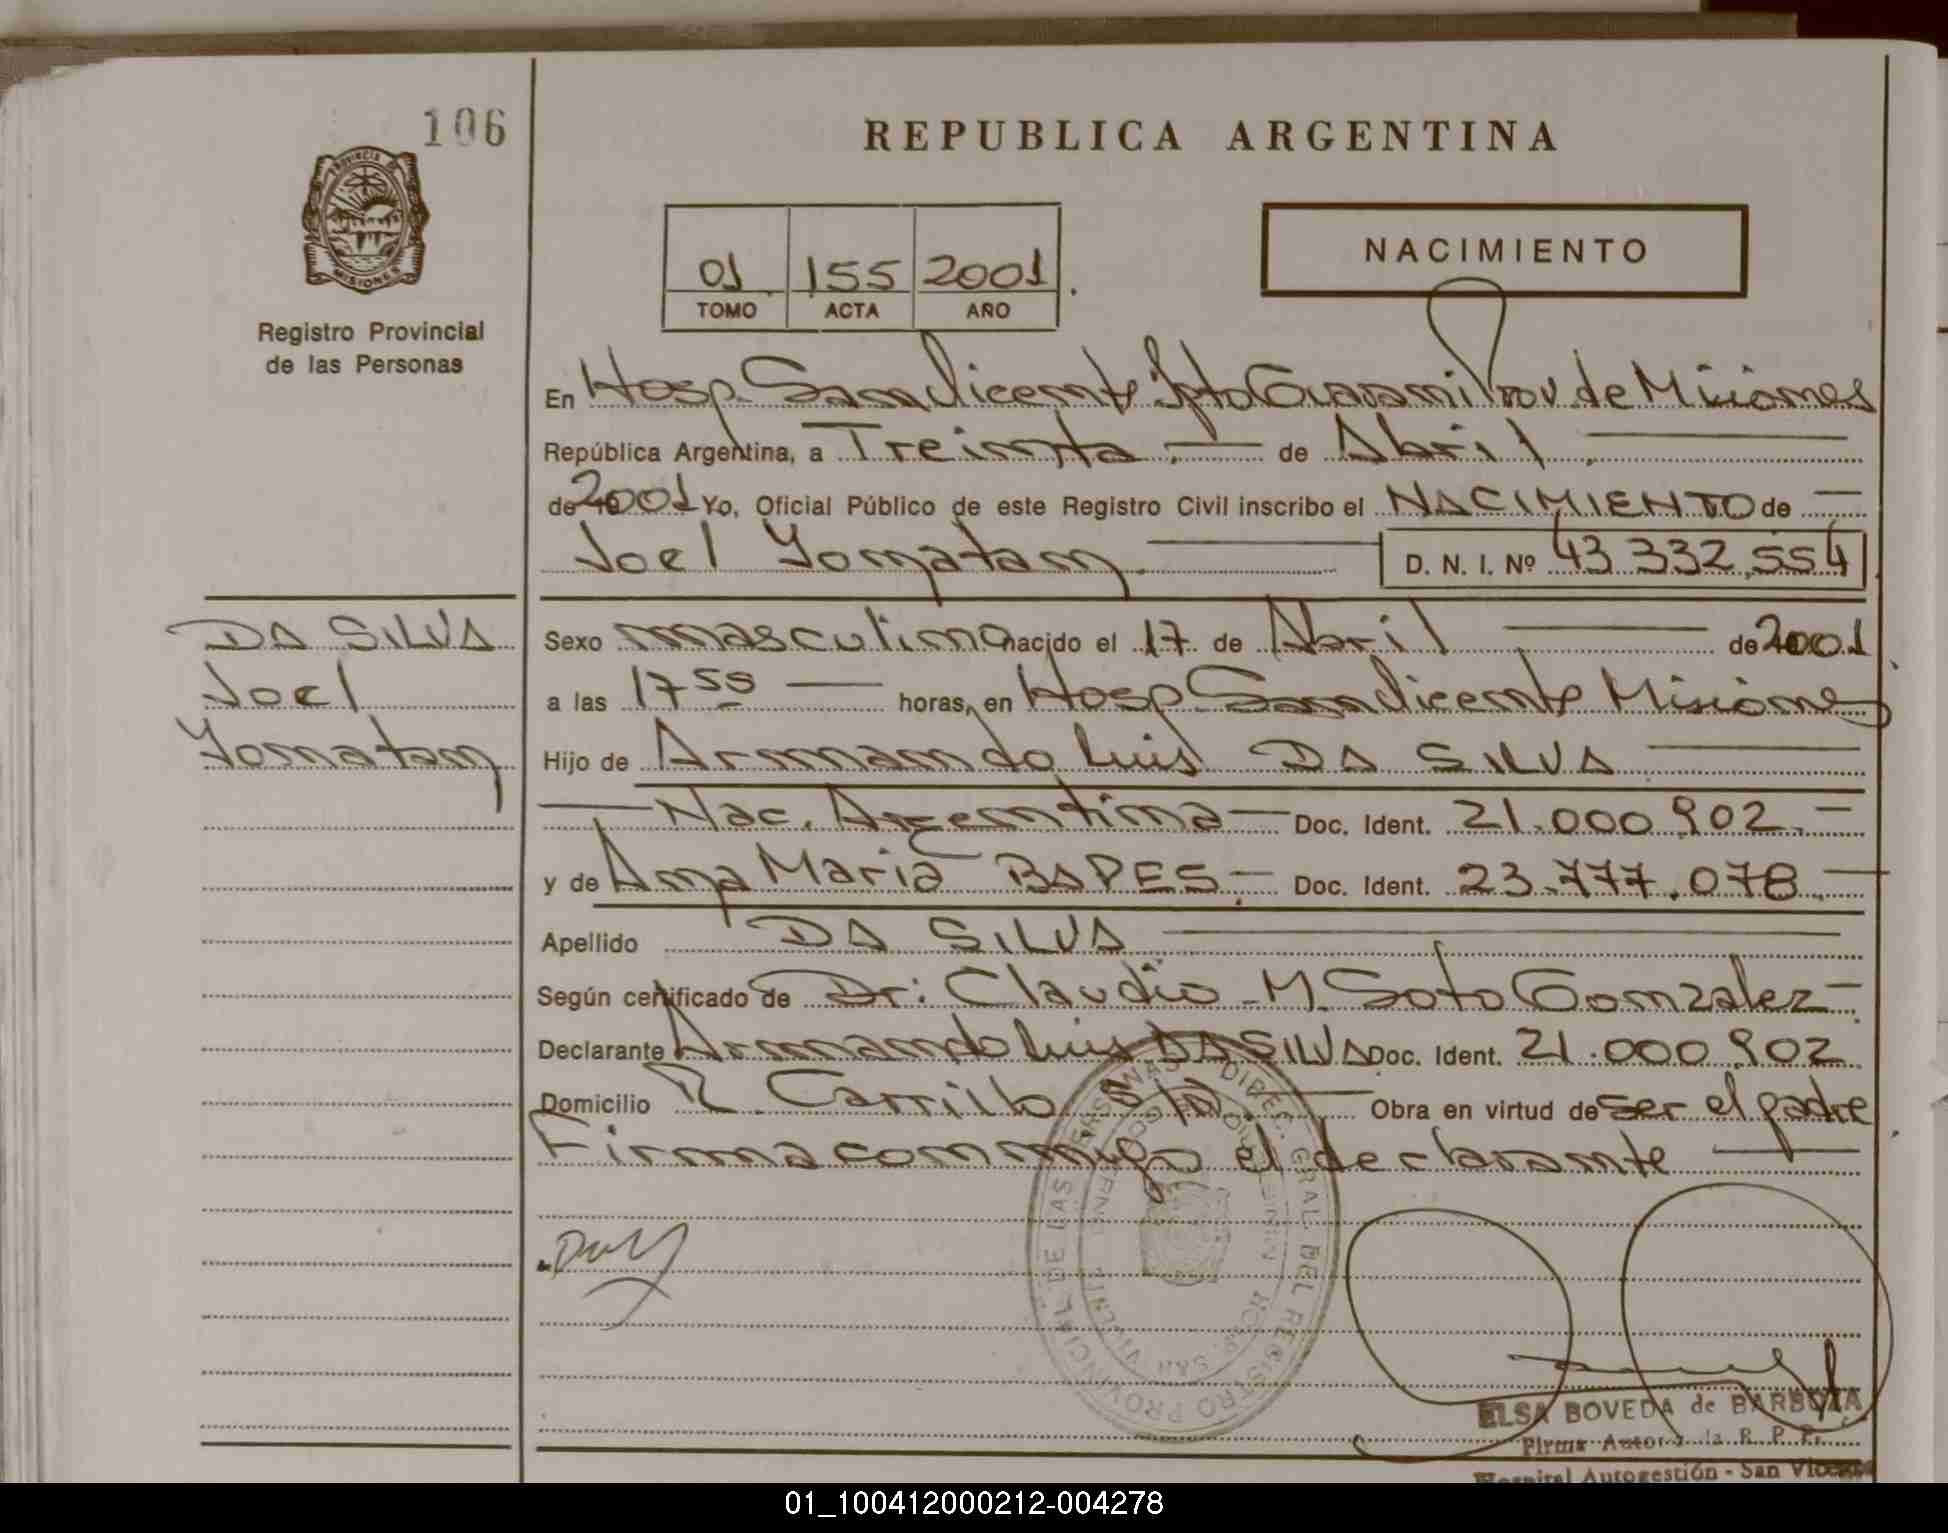 106
REPUBLICA ARGENTINA
PROVINCIA DE MISIONES
Registro Provincial
de las Personas
01 155 2001
TOMO ACTA AÑO
NACIMIENTO
En Hosp. San Vicente Dpto Guarani Prov. de Misiones
República Argentina, a Treinta de Abril
de 2001 Yo, Oficial Público de este Registro Civil inscribo el NACIMIENTO de
Joel Yonatan D. N. I. Nº 43 332.554
DA SILVA
Joel
Yonatan
Sexo masculino nacido el 17 de Abril de 2001
a las 17 55 horas, en Hosp San Vicente Misiones
Hijo de Armando Luis DA SILVA
Nac. Argentina Doc. Ident. 21.000.902
y de Ana Maria Doc. Ident. 23.777.078
Apellido DA SILVA
Según certificado de Dr: Claudio M. Soto Gonzalez
Declarante Armando Luis DA SILVA Doc. Ident. 21.000.902
Domicilio R. Carrillo S/N. Obra en virtud de ser el padre
Firma conmigo el declarante
DIREC. GRAL. DEL REGISTRO PROVINCIAL DE LAS PERSONAS
HOSP. SAN VICENTE
ELSA BOVEDA de BARBOZA
Firma Autorizada R. P. P.
Hospital Autogestión - San Vicente
01_100412000212-004278